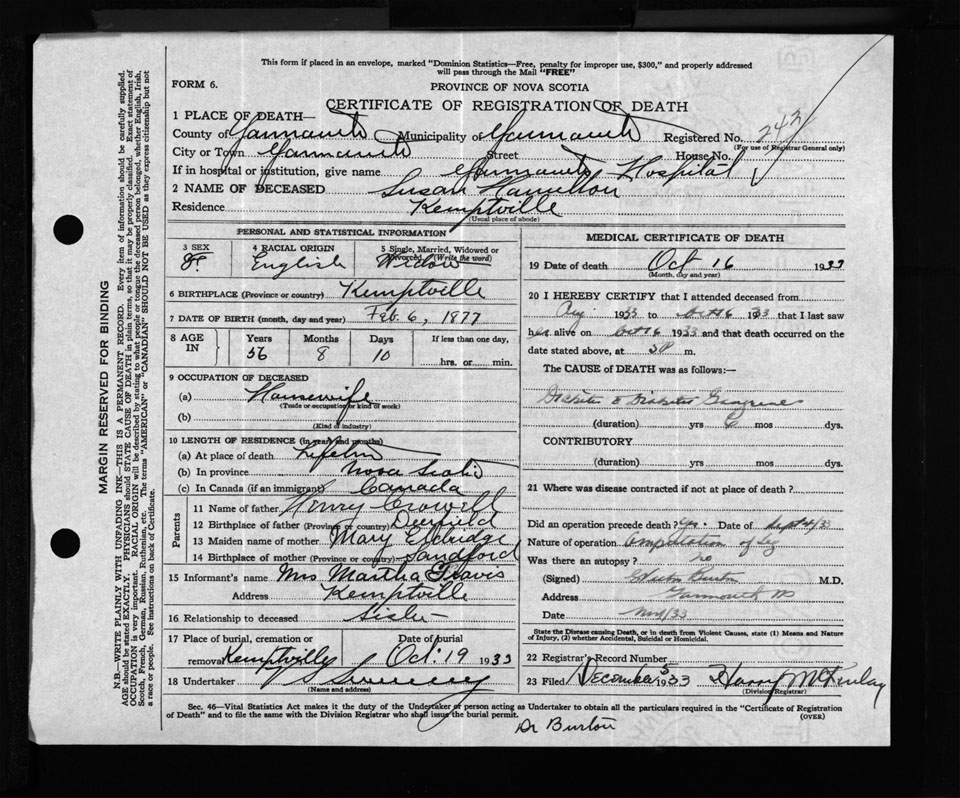 This form if placed in an envelope, marked "Dominion Statistics—Free, penalty for improper use, $300," and properly addressed
will pass through the Mail "FREE"
FORM 6.
PROVINCE OF NOVA SCOTIA
CERTIFICATE OF REGISTRATION OF DEATH
1 PLACE OF DEATH—
County of Yarmouth Municipality of Yarmouth Registered No. 242
(For use of Registrar General only)
City or Town Yarmouth Street House No.
If in hospital or institution, give name Yarmouth Hospital
2 NAME OF DECEASED Susan Hamilton
Residence Kemptville
(Usual place of abode)
PERSONAL AND STATISTICAL INFORMATION
3 SEX 4 RACIAL ORIGIN 5 Single, Married, Widowed or
Divorced (Write the word)
F. English Widow
6 BIRTHPLACE (Province or country) Kemptville
7 DATE OF BIRTH (month, day and year) Feb. 6, 1877
8 AGE IN Years Months Days If less than one day,
56 8 10 hrs. or min.
9 OCCUPATION OF DECEASED
(a) Housewife
(Trade or occupation or kind of work)
(b)
(Kind of industry)
10 LENGTH OF RESIDENCE (in years and months)
(a) At place of death Lifetime
(b) In province Nova Scotia
(c) In Canada (if an immigrant) Canada
Parents
11 Name of father Henry Crowell
12 Birthplace of father (Province or country) Deerfield
13 Maiden name of mother Mary Eldridge
14 Birthplace of mother (Province or country) Sandford
15 Informant's name Mrs Martha Travis
Address Kemptville
16 Relationship to deceased Sister
17 Place of burial, cremation or Date of burial
removal Kemptville Oct. 19 1933
18 Undertaker V S Sweeney
(Name and address)
MEDICAL CERTIFICATE OF DEATH
19 Date of death Oct 16 1933
(Month, day and year)
20 I HEREBY CERTIFY that I attended deceased from
Aug 1933 to Oct 16 1933 that I last saw
her alive on Oct 16 1933 and that death occurred on the
date stated above, at 5P m.
The CAUSE of DEATH was as follows:—
Diabetes & Diabetic Gangrene
(duration) yrs mos dys.
CONTRIBUTORY
(duration) yrs mos. dys.
21 Where was disease contracted if not at place of death?
Did an operation precede death? Yes. Date of Sept 4/33
Nature of operation Amputation of leg
Was there an autopsy? no
(Signed) Burton M.D.
Address Yarmouth NS
Date Nov/33
State the Disease causing Death, or in death from Violent Causes, state (1) Means and Nature
of Injury, (2) whether Accidental, Suicidal or Homicidal.
22 Registrar's Record Number
23 Filed December 5 1933 Harry McKinlay
(Division Registrar)
Sec. 46—Vital Statistics Act makes it the duty of the Undertaker or person acting as Undertaker to obtain all the particulars required in the "Certificate of Registration
of Death" and to file the same with the Division Registrar who shall issue the burial permit.
(OVER)
Dr Burton
MARGIN RESERVED FOR BINDING
N.B.—WRITE PLAINLY WITH UNFADING INK—THIS IS A PERMANENT RECORD. Every item of information should be carefully supplied.
AGE should be stated EXACTLY. PHYSICIANS should STATE CAUSE OF DEATH in plain terms, so that it may be properly classified. Exact statement of
OCCUPATION is very important. RACIAL ORIGIN will be described by stating to what people or tongue the deceased person belonged, whether English, Irish,
Scotch, French, German, Russian, Ruthenian, etc. The terms "AMERICAN" or "CANADIAN" SHOULD NOT BE USED as they express citizenship but not
a race or people. See instructions on back of Certificate.